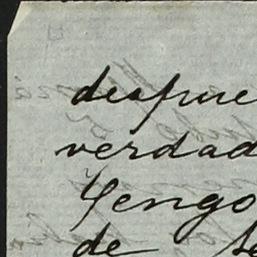 despue
verdad
Tengo
de